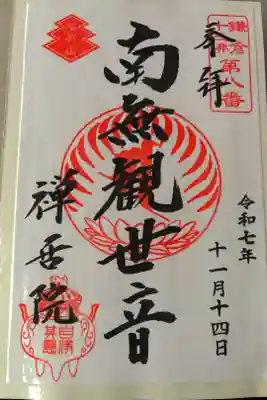 奉拝
鎌倉
十三佛
第八番
南無観世音
禅居院
令和七年
十一月十四日